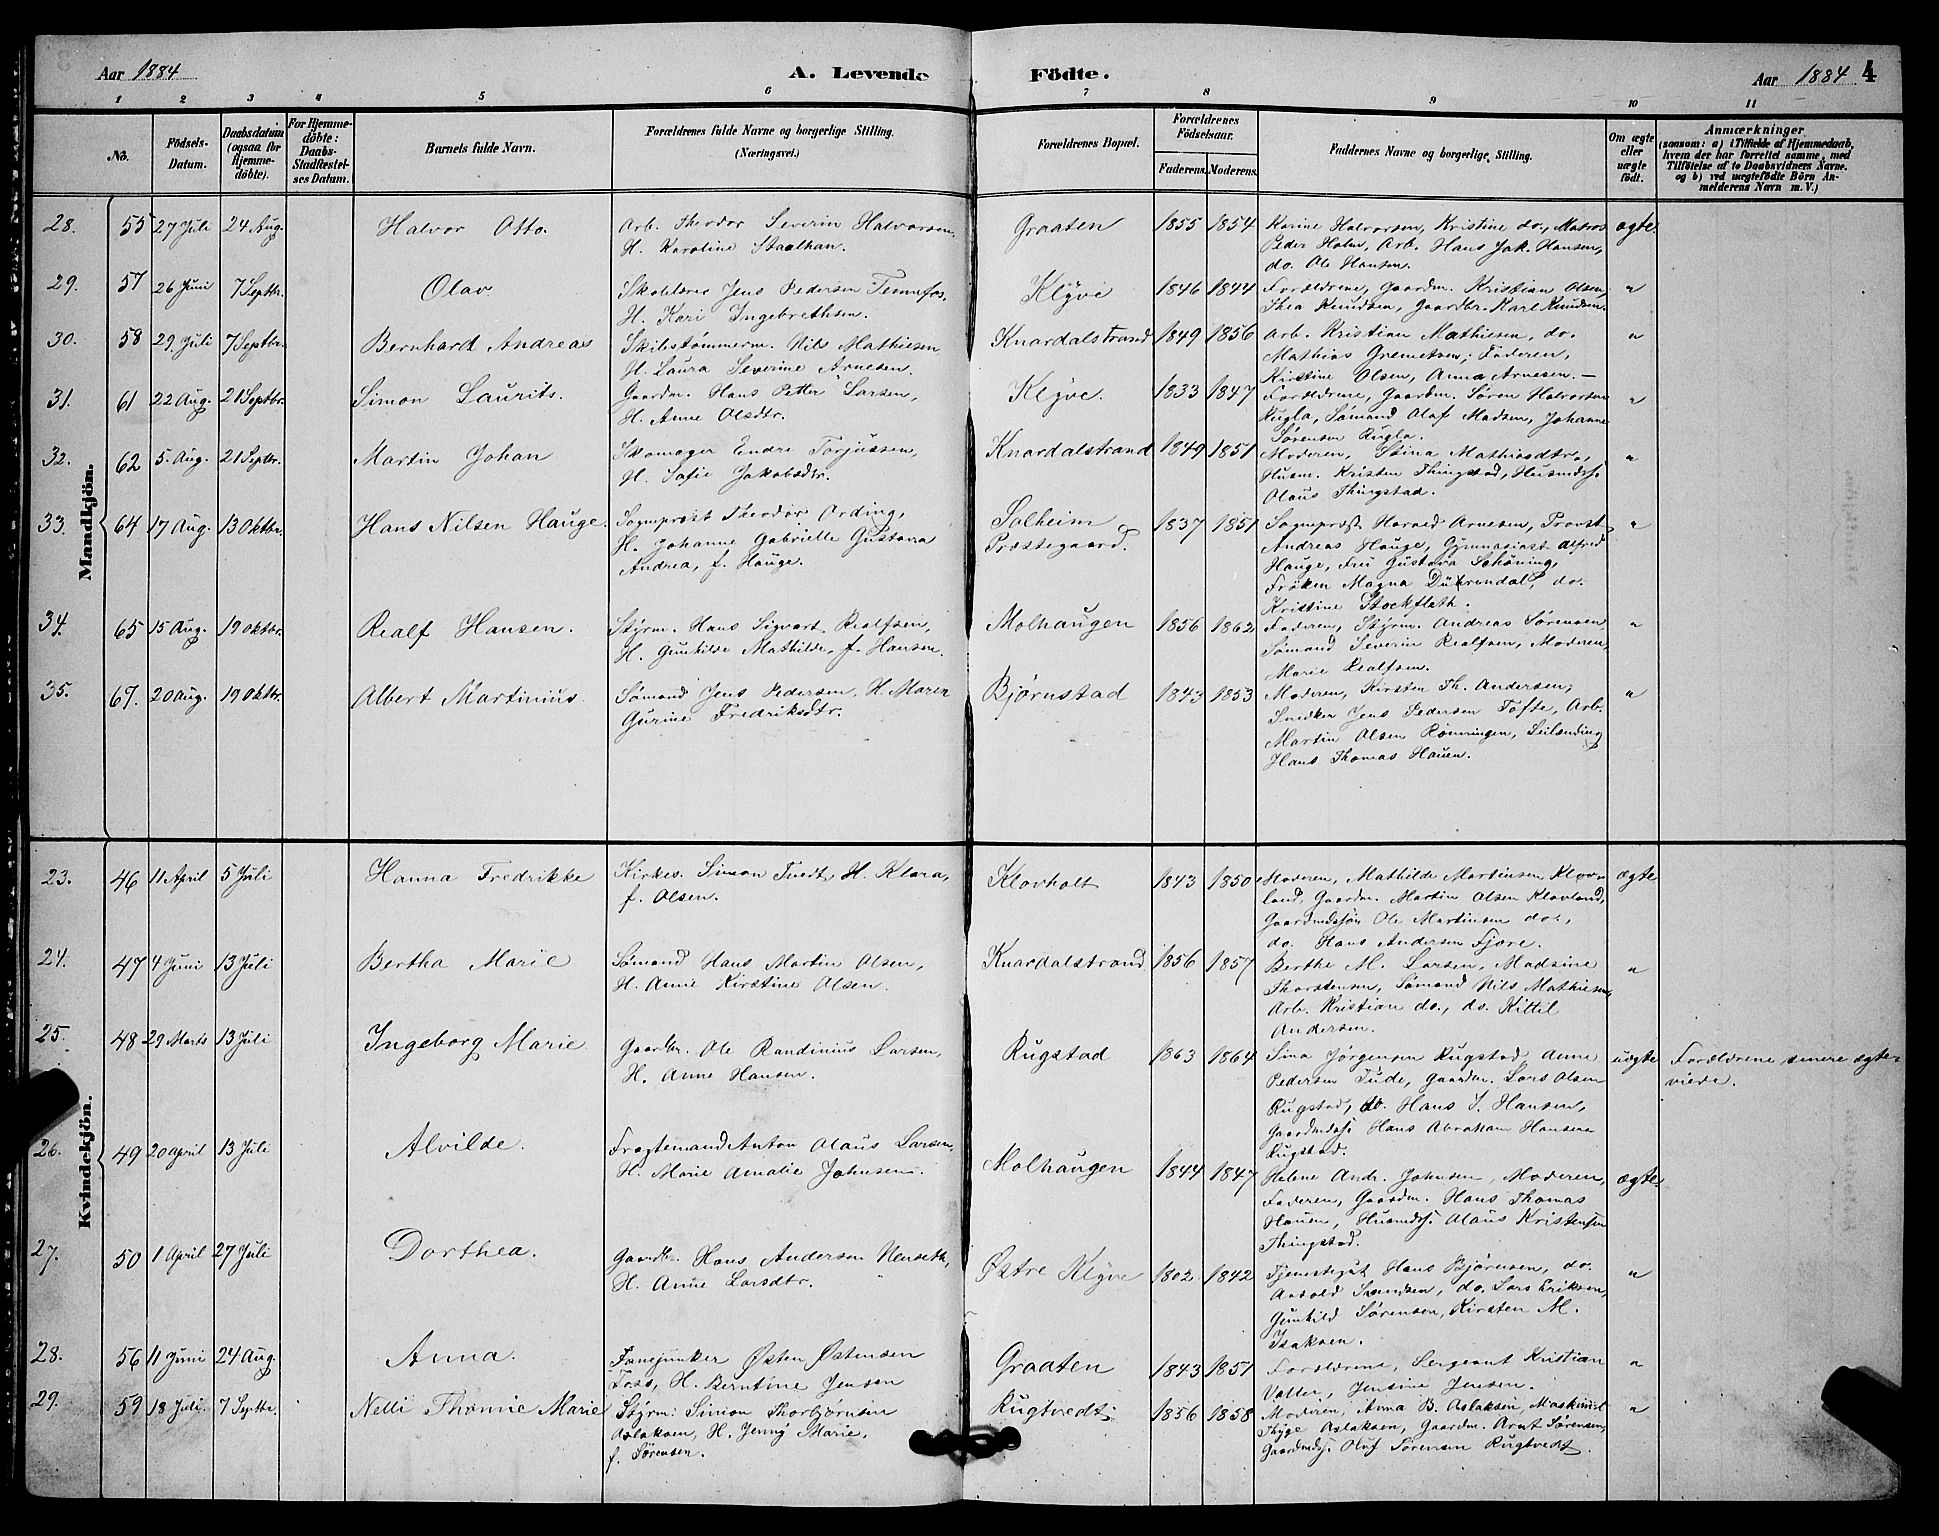 Aar 1884 A. Levende Födte. Aar 1884 4
1 2 3 4 5 6 7 8 9 10 11
No. Födsels-Datum. Daabsdatum (ogsaa for Hjemmedöbte). For Hjemmedöbte: Daabs-Stadfæstelses Datum. Barnets fulde Navn. Forældrenes fulde Navne og borgerlige Stilling. (Næringsvei.) Forældrenes Bopæl. Forældrenes Födselsaar. Faderens. Moderens. Faddernes Navne og borgerlige Stilling. Om ægte eller uægte födt. Anmærkninger (saasom: a) i Tilfælde af Hjemmedaab, hvem der har forrettet samme, med Tilföielse af to Daabsvidners Navne, og b) ved uægtefödte Börn Anmelderens Navn m. V.)
Mandkjön.
28. 55 27 Juli 24 Aug. Halvor Otto. Arb. Theodor Severin Halvorsen, Graaten 1855 1854 Karine Halvorsen, Kristine do., Matros ægte.
H. Karoline Staalhan. Peder Holm, Arb. Hans Jak. Hansen,
do. Ole Hansen.
29. 57 26 Juni 7 Septbr. Olav Skolelærer Jens Pedersen Tennefos, Klyve 1846 1844 Forældrene, Gaardm. Kristian Olsen, "
H. Kari Ingebrethsen. Thea Knudsen, Gaardbr. Karl Knudsen.
30. 58 29 Juli 7 Septbr. Bernhard Andreas Skibstømmerm. Nils Mathiesen Knardalstrand 1849 1856 Arb. Kristian Mathiesen, do. "
H. Laura Severine Arnesen. Mathias Gremetsen, Faderen,
Kirstine Olsen, Anna Arnesen. —
31. 61 22 Aug. 21 Septbr. Simon Laurits. Gaardm. Hans Petter Larsen, Klyve. 1833 1847 Forældrene, Gaardm. Søren Halvorsen "
H. Anne Olsdtr. Rugla, Sømand Olaf Madsen, Johanne
Sørensen Rugla.
32. 62 5. Aug. 21 Septbr. Martin Johan Skomager Endre Torjussen, Knardalstrand 1849 1851 Moderen, Stina Mathiasdtr., "
H. Sofie Jakobsdtr. Husm. Kristen Thingstad, Husmdsf.
Olaus Thingstad.
33. 64 17 Aug. 13 Oktbr. Hans Nilsen Hauge. Sogneprest Theodor Arding, Solheim 1837 1851 Sogneprest Harald Arnesen, Provst "
H. Johanne Gabrielle Gustava Præstegaard. Andreas Hauge, Gymnasiast Alfred
Andrea, f. Hauge. Hauge, Fru Gustava Schöning,
Frøken Magna do.
Kristine Stockfleth.
34. 65 15 Aug. 19 Oktbr. Realf Hansen. Styrm. Hans Sigvart Realfsen, Molhaugen 1856 1862 Faderen, Styrm. Andreas Sørensen "
H. Gunhilde Mathilde, f. Hansen. Sømand Severin Realfsen, Moderen,
Marie Realfsen.
35. 67. 20 Aug. 19 Oktbr. Albert Martinius. Sømand Jens Pedersen, H. Maren Bjørnstad 1843 1853 Moderen, Kirsten Th. Andersen, "
Gurine Fredriksdtr. Snedker Jens Pedersen Tofte, Arb.
Martin Olsen Rönningen, Leilænding
Hans Thomas Hauen.
Kvindekjön.
23. 46 11 April 5 Juli Hanna Fredrikke Kirkes. Simon Tvedt, H. Klara, Klovholt 1843 1850 Moderen, Mathilde Martinsen Klov- ægte
f. Olsen. land, Gaardm. Martin Olsen Klovland,
Gaardmdssøn Ole Martinsen do.,
do. Hans Andersen Fjære.
24. 47 4 Juni 13 Juli Bertha Marie Sømand Hans Martin Olsen, Knardalstrand 1856 1857 Berthe M. Larsen, Madsine "
H. Anne Kirstine Olsen. Thorstensen, Sømand Nils Mathiesen,
Arb. Kristian do., do. Kittil
Andersen.
25. 48 29 Marts 13 Juli Ingeborg Marie Gaardbr. Ole Randinius Larsen, Rugstad 1863 1864 Sina Jørgensen Rugstad, Anne uægte Forældrene senere ægte-
H. Anne Hansen. Pedersen Tude, Gaardm. Lars Olsen viede.
Rugstad, do. Hans J. Hansen,
Gaardmdsf. Hans Abraham Hansen
Rugstad.
26. 49 20 April 13 Juli Alvilde. Fragtemand Anton Olaus Larsen, Molhaugen 1844 1847 Helene Andr. Johnsen, Moderen, ægte.
H. Marie Amalie Johnsen. Faderen, Gaardm. Hans Thomas
Hauen, Husmdsf. Olaus Kristensen
Thingstad.
27. 50 1 April 27 Juli Dorthea. Gaardbr. Hans Andersen Venseth, Østre Klyve 1802 1842 Tjenestegut Hans Bjørnsen, do. "
H. Anne Larsdtr. do. Lars Eriksen,
Gunhild Sørensen, Kirsten M.
Isaksen.
28. 56 11 Juni 24 Aug. Anna. Fanejunker Østen Østensen Graaten 1843 1851 Forældrene, Sergeant Kristian "
Foss, H. Berntine Jensen Valler, Jensine Jensen.
29. 59 18 Juli 7 Septbr. Nelli Thomie Marie Styrm: Simon Thorbjørnsen Rugtvedt 1856 1858 Moderen, Anna B. Aslaksen, Maskinist "
Aslaksen, H. Jenny Marie, Thyge Aslaksen, Gaardm. Arnt Sørensen,
f. Sørensen. Gaardmdsf. Oluf Sørensen Rugtvedt.